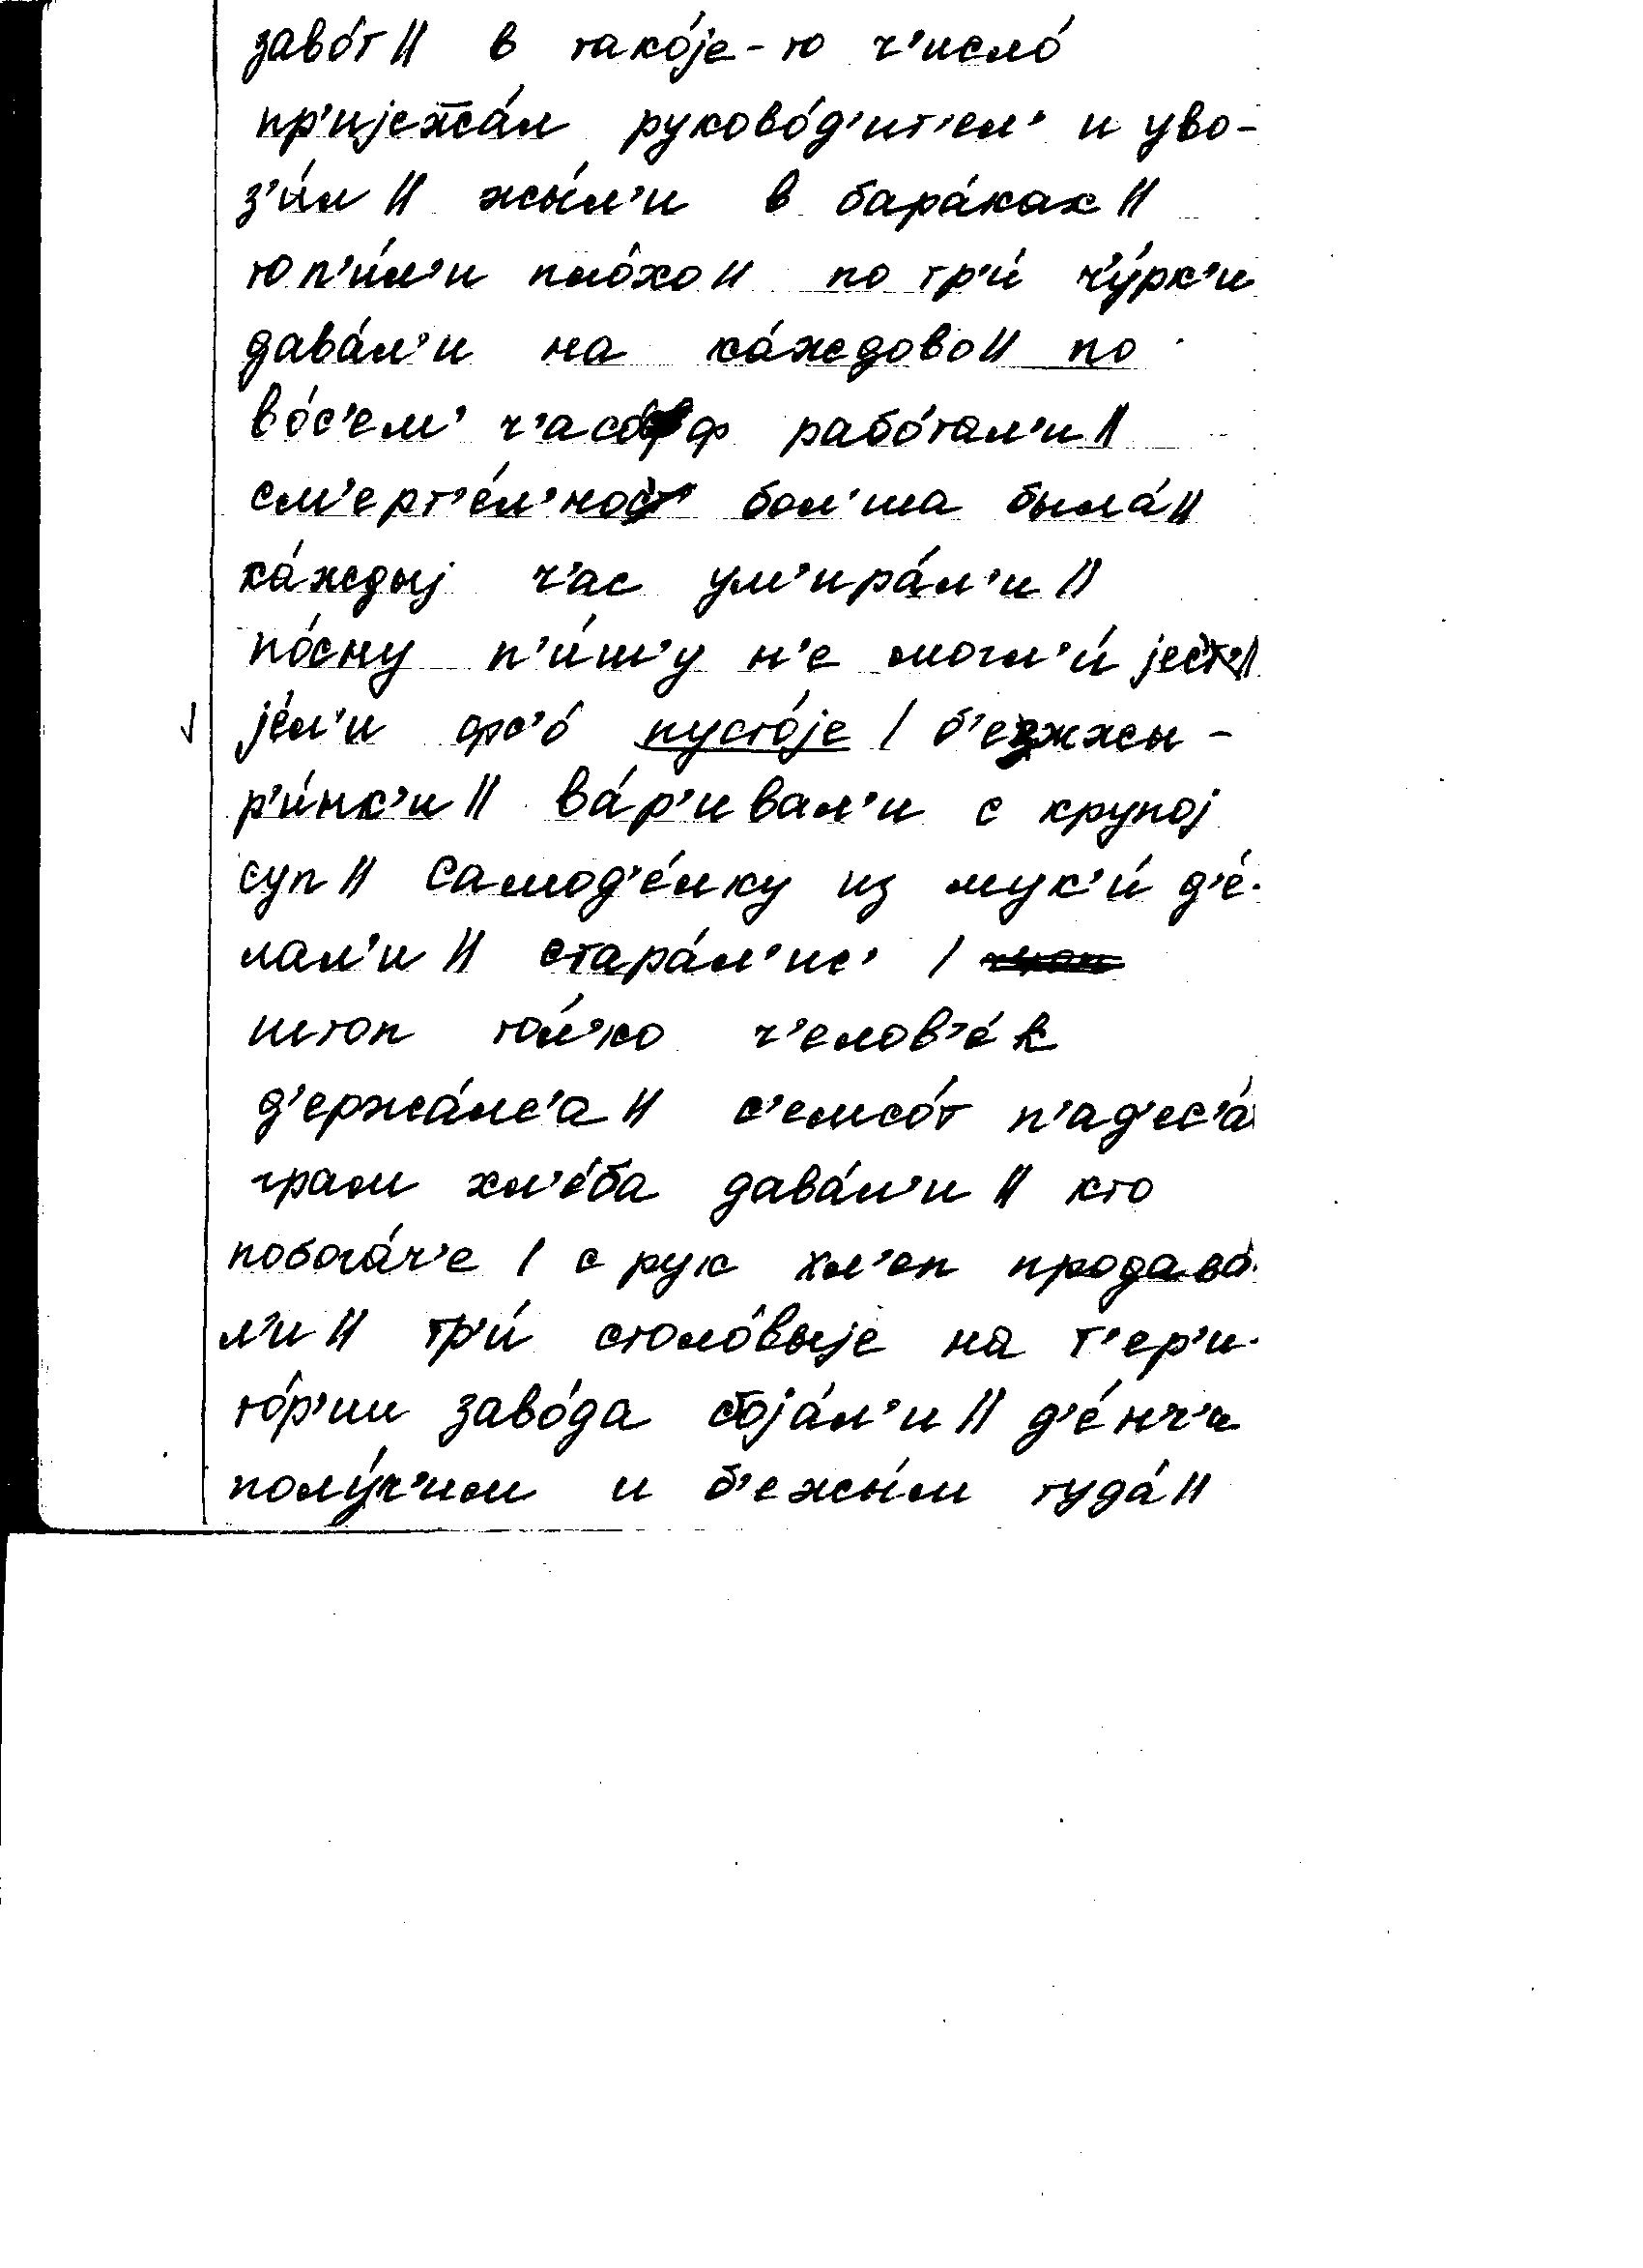 заво́т // в тако́jе-то ч'исло́
пр'иjеж̅а́л руково́д'ит'ел' и уво-
з'и́л // жы́л'и в бара́ках //
топ'и́л'и пло́хо // по тр'и́ ч'у́рк'и
дава́л'и на ка́ждово // по
во́с'ем' ч'асо́ф рабо́тал'и //
см'ерт'е́л'ност' бол'ша была́ //
ка́ждыj ч'ас ум'ира́л'и //
по́сну п'и́ш'у н'е могл'и́ jест' //
jе́л'и фс'о́ пусто́jе / б'ежжы-
р'и́нк'и // ва́р'ивал'и с крупоj
суп // самод'е́лку из мук'и́ д'е́-
лал'и // стара́л'ис' /
штоп то́л'ко ч'елов'е́к
д'ержа́лс'а // с'емсо́т п'ад'ес'а́
грам хл'е́ба дава́л'и // кто
побога́ч'е / с рук хл'еп продава́-
л'и // тр'и́ столо́выjе на т'ер'и-
то́р'ии заво́да стоjа́л'и // д'е́нч'и
полу́ч'им и б'ежы́м туда́ //